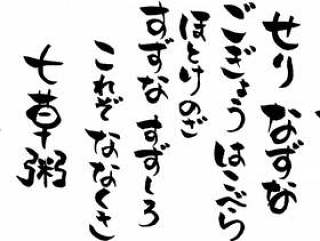 せり なずな
ごぎょう はこべら
ほとけのざ
すずな すずしろ
これぞ ななくさ
七草粥